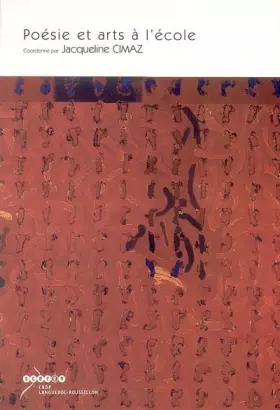 Poésie et arts à l'école
Coordonné par Jacqueline CIMAZ
scérén
CRDP
LANGUEDOC-ROUSSILLON